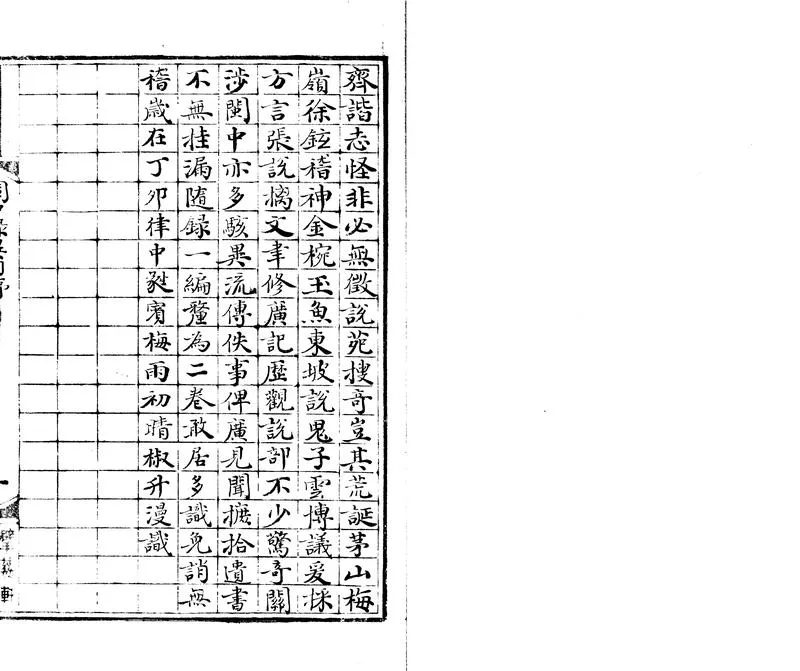 齊諧志怪非必無徵說苑搜奇豈其荒誕茅山梅
嶺徐鉉稽神金椀玉魚東坡說鬼子雲博議爰採
方言張說摛文聿修廣記歷觀說部不少驚奇關
涉閩中亦多駭異流傳佚事俾廣見聞摭拾遺書
不無挂漏隨録一編釐為二卷敢居多識免誚無
稽歲在丁卯律中蕤賓梅雨初晴椒升漫識